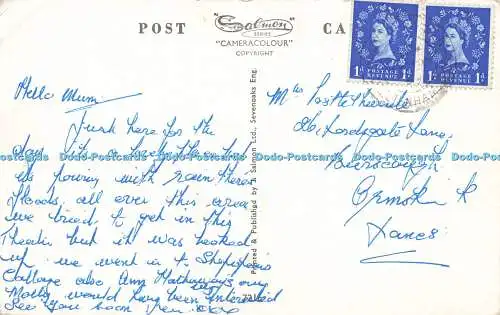 POST CA
Salmon
SERIES
"CAMERACOLOUR"
COPYRIGHT
1d POSTAGE REVENUE 1d
1d POSTAGE REVENUE 1d
Hello Mum
Just here for the
day, it's a lovely
its pouring with rain there's
floods all over this area
we tried to get in this
Theatre but it was booked
up. we went in to
Cottage also Ann Hathaways
Molly would have been interested
See you soon xxx
Printed & Published by J. Salmon Ltd., Sevenoaks Eng.
Mrs Postlethwaite
Lordsgate Lane,
Burscough
Ormskirk
Lancs
Dodo Postcards Dodo Postcards Dodo Postcards Dodo Postcards Dodo Postcards Dodo Postcards